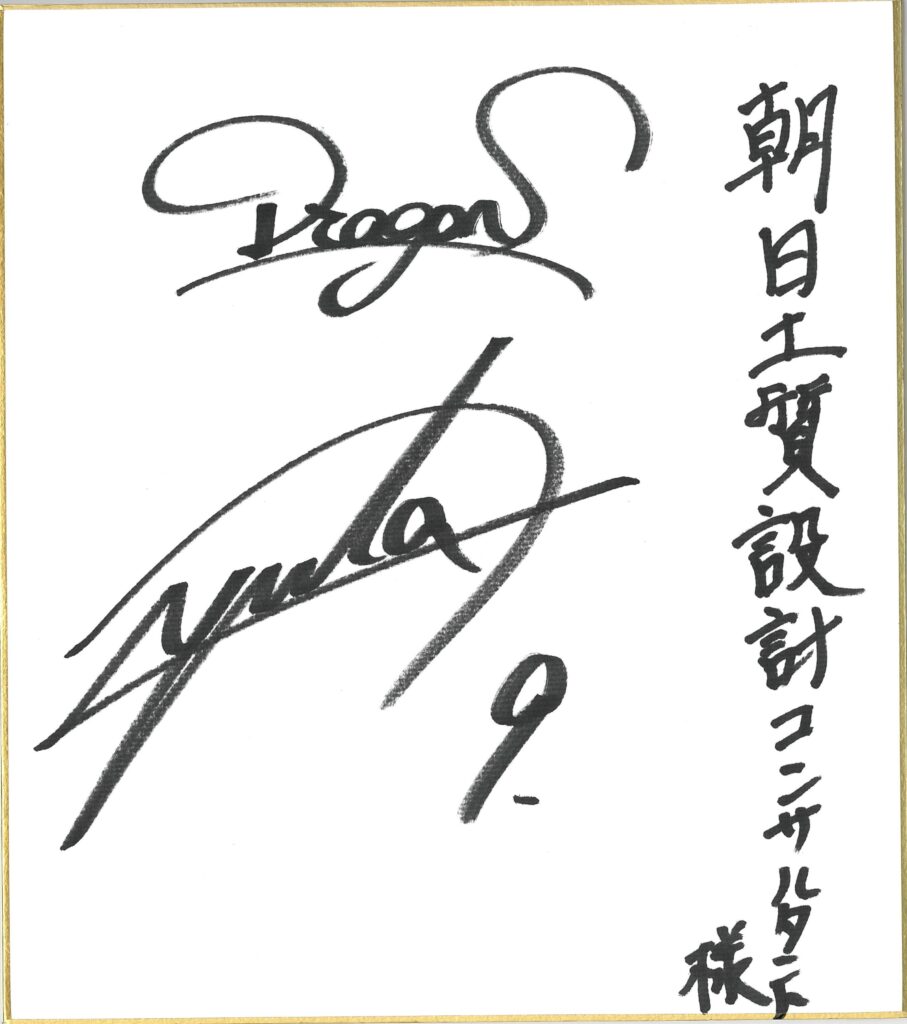 朝日土質設計コンサルタント
様
Dragons
yuda
9